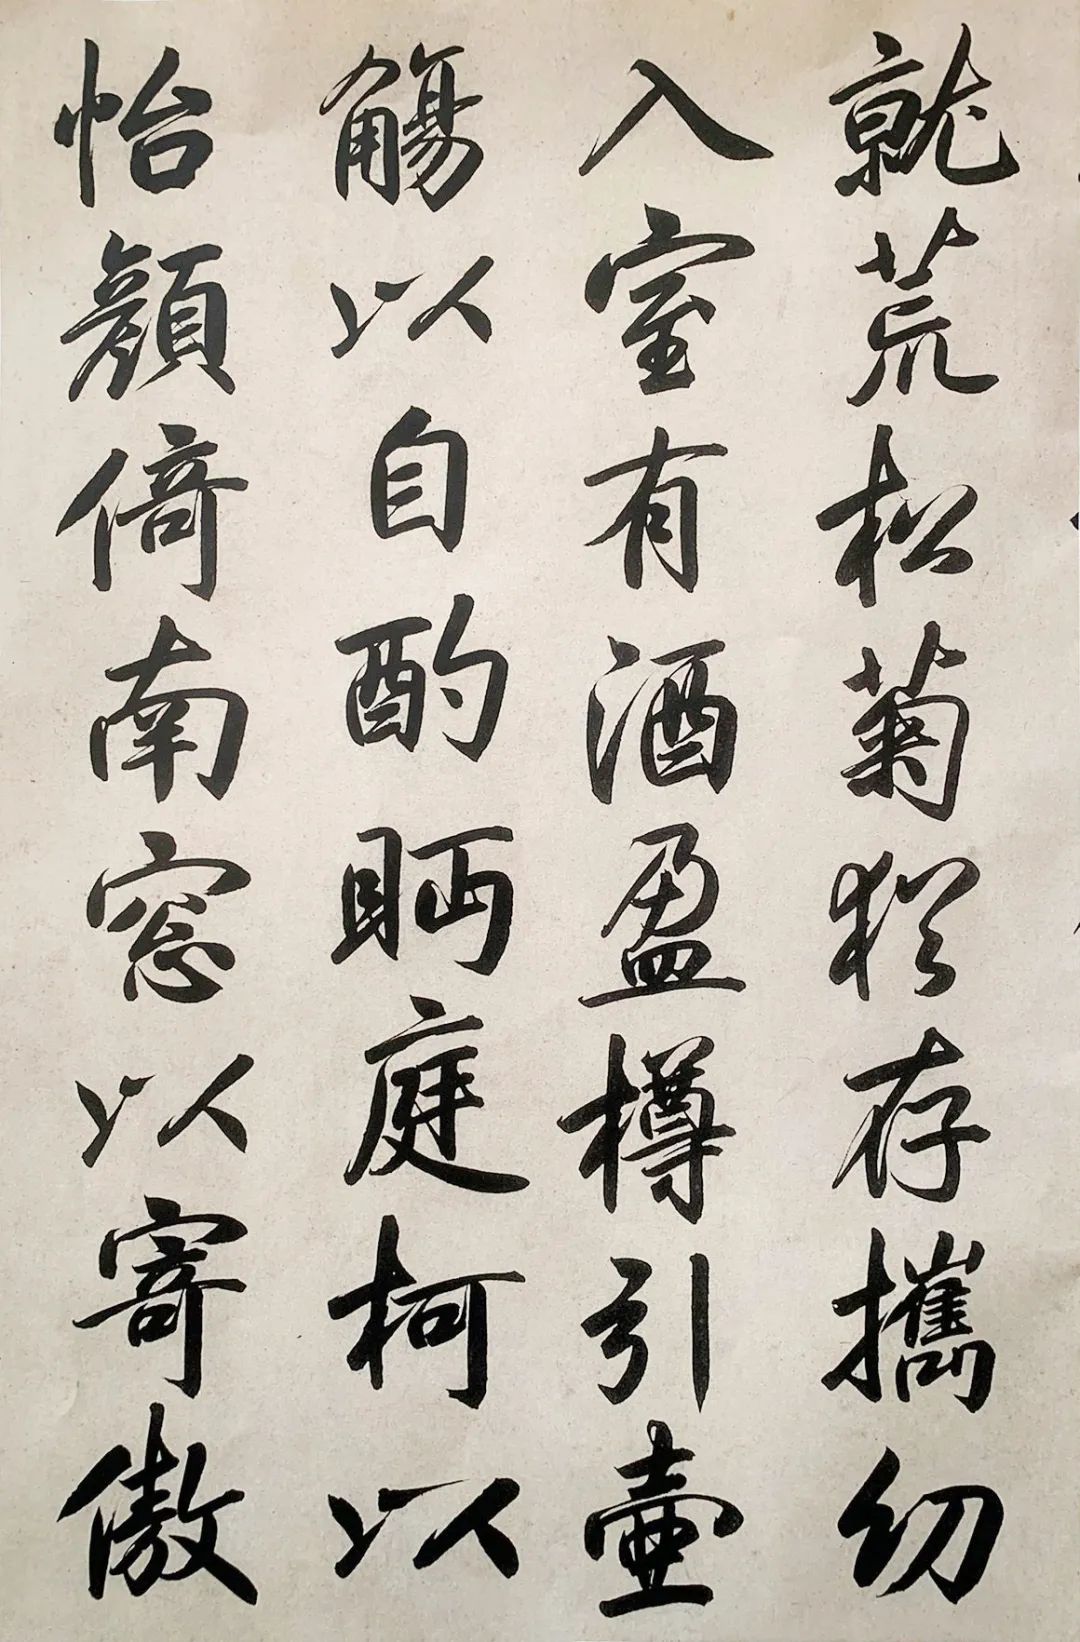 就荒松菊猶存攜幼
入室有酒盈樽引壺
觴以自酌眄庭柯以
怡顏倚南窓以寄傲